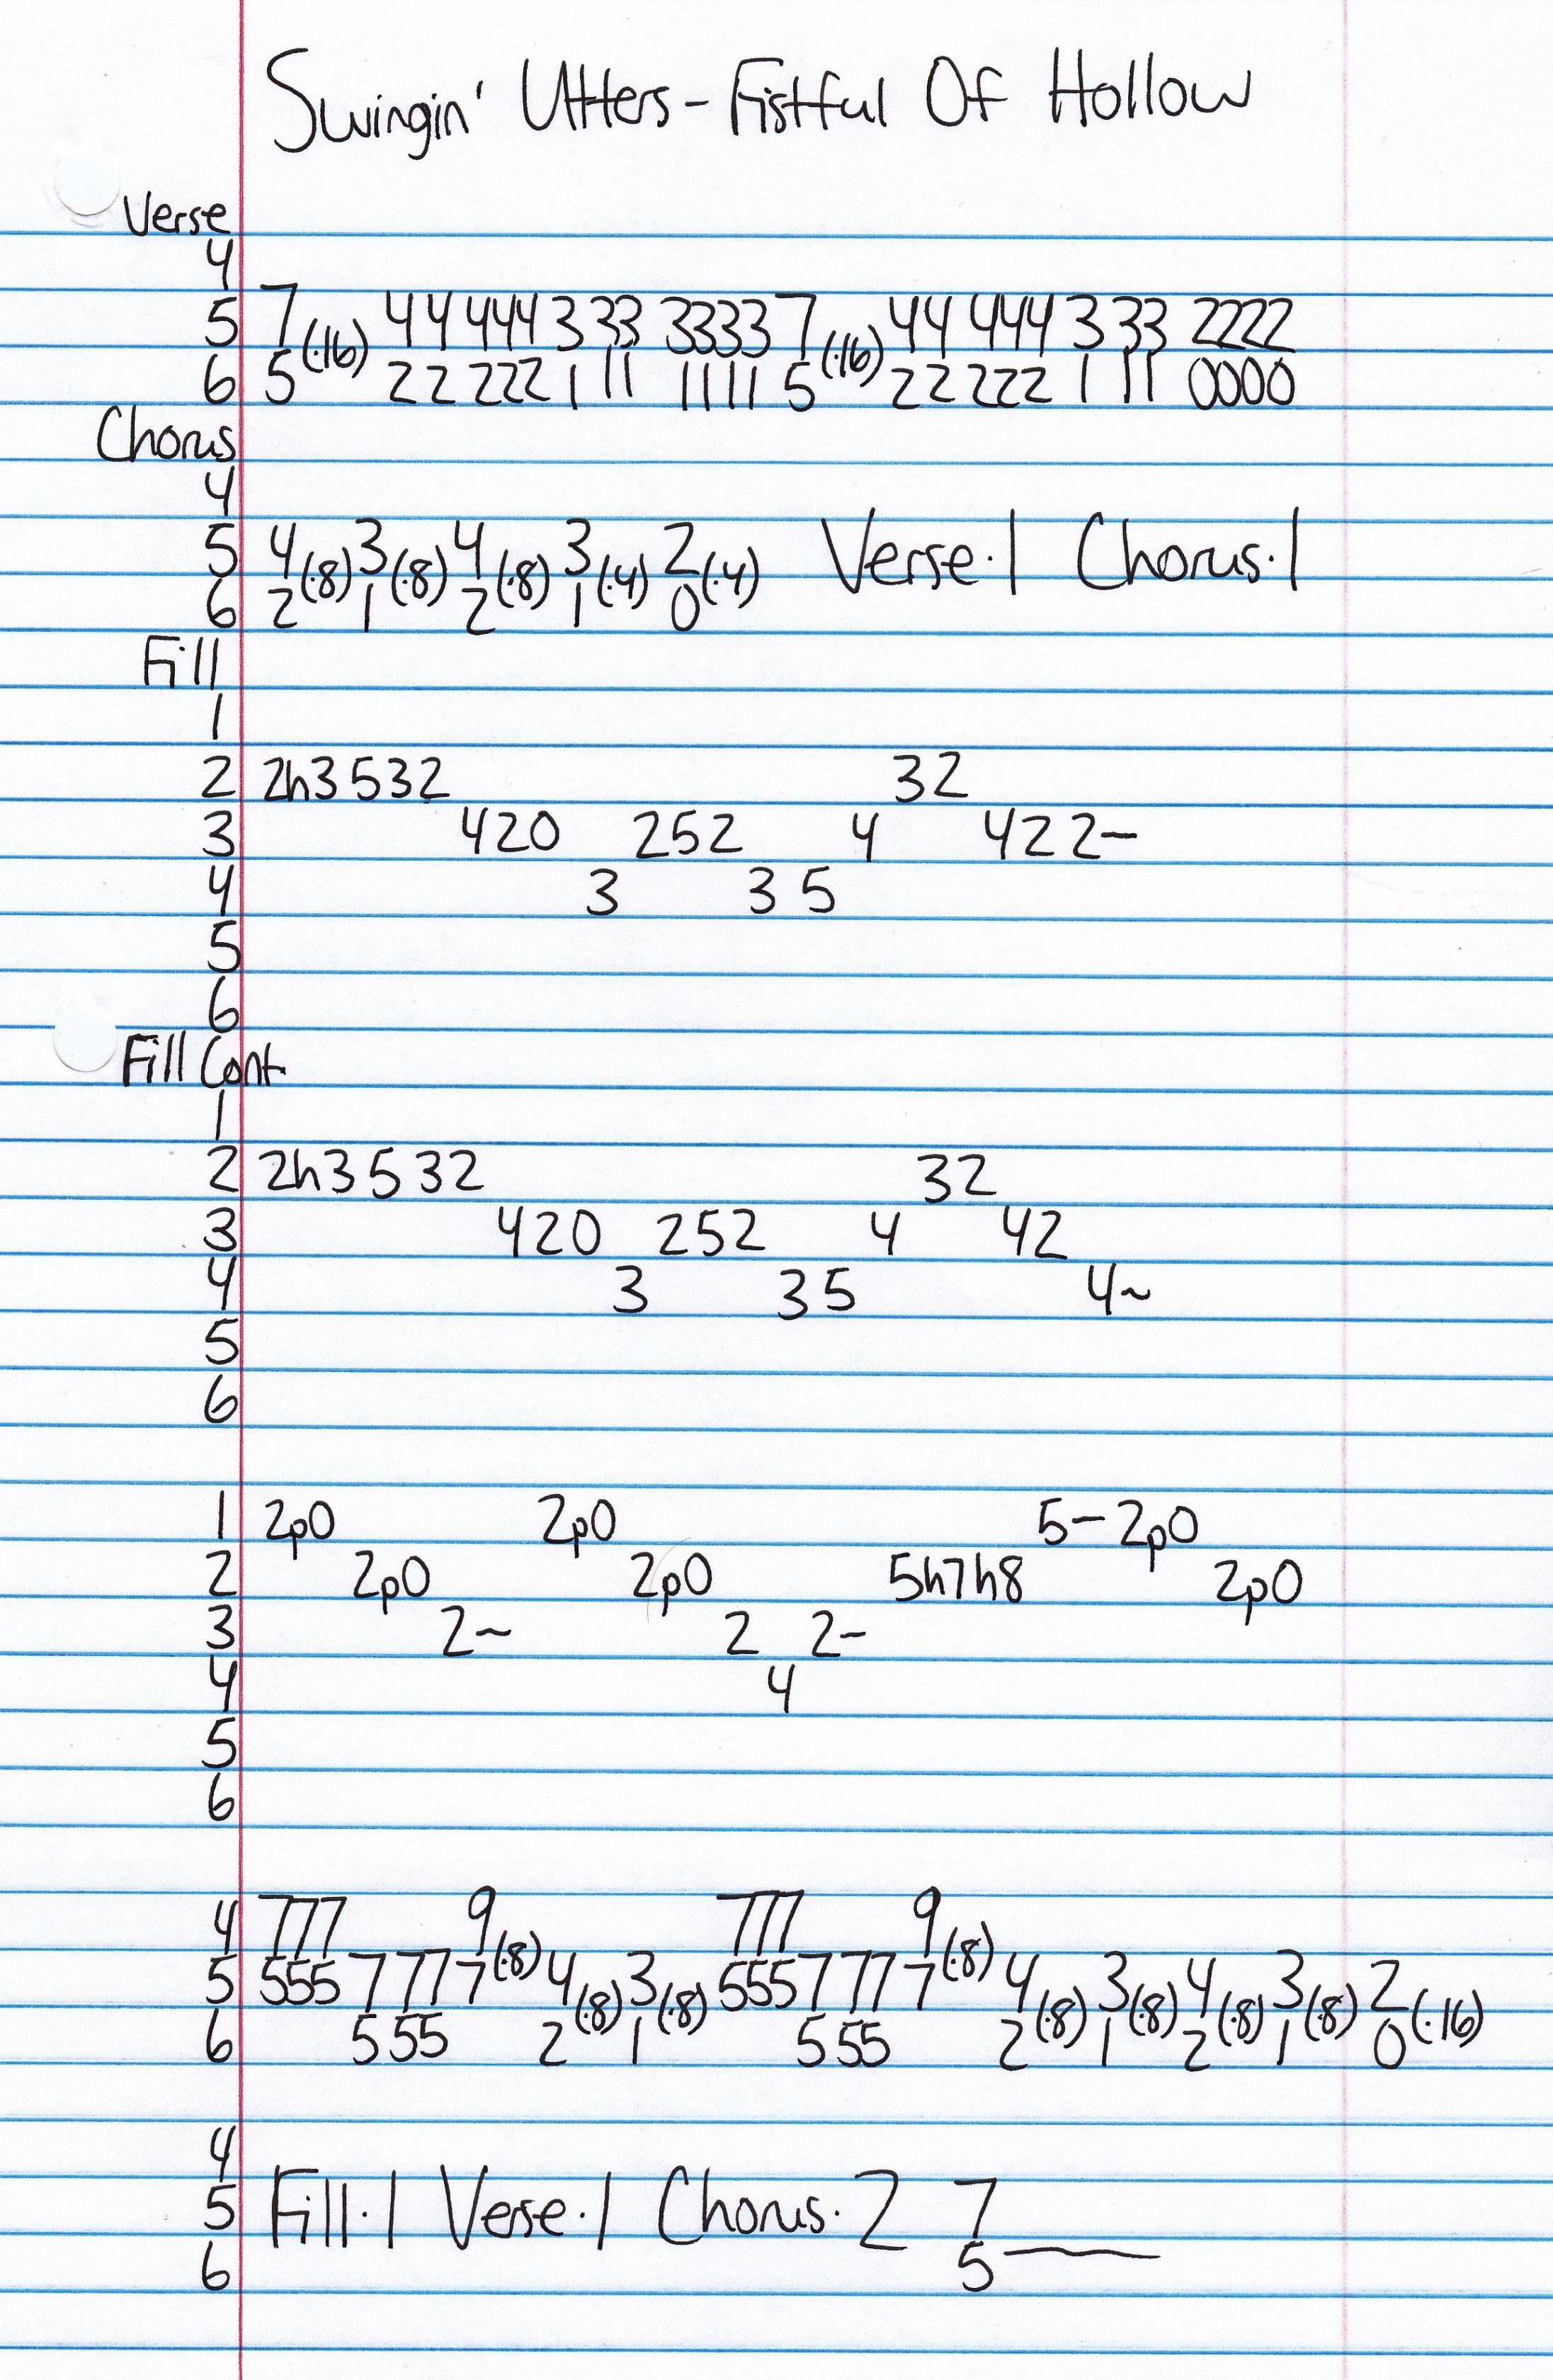 Swingin' Utters - Fistful Of Hollow
Verse
4
5 7(·16) 44 444 3 33 3333 7(·16) 44 444 3 33 2222
6 5 22 222 1 11 1111 5 22 222 1 11 0000
Chorus
4
5 4(·8) 3(·8) 4(·8) 3(·4) 2(·4) Verse·1 Chorus·1
6 2 1 2 1 0
Fill
1
2 2h3 532 32
3 420 252 4 422-
4 3 3 5
5
6
Fill Cont.
1
2 2h3 5 32 32
3 420 252 4 42
4 3 35 4~
5
6
1 2p0 2p0 5-2p0
2 2p0 2p0 5h7h8 2p0
3 2~ 2 2-
4 4
5
6
4 777 9(·8) 777 9(·8)
5 555 7 77 7 4(·8) 3(·8) 555 7 77 7 4(·8) 3(·8) 4(·8) 3(·8) 2(·16)
6 5 55 2 1 5 55 2 1 2 1 0
4
5 Fill·1 Verse·1 Chorus·2 7
6 5